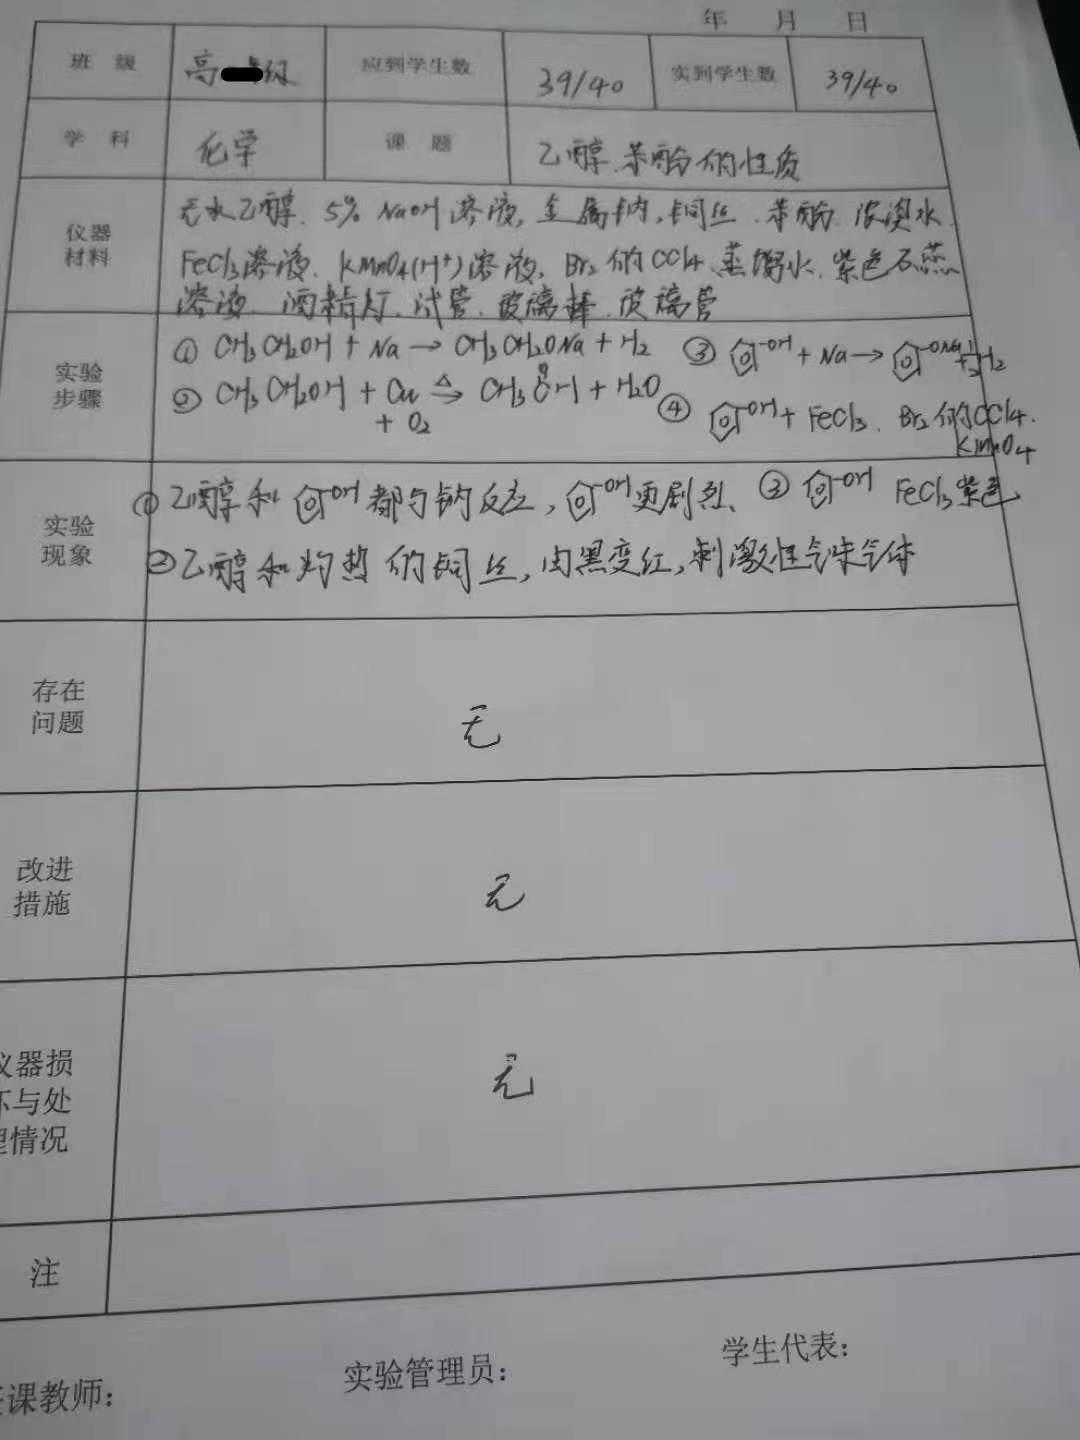 年 月 日
班 级 高 级 应到学生数 39/40 实到学生数 39/40
学 科 化学 课 题 乙醇、苯酚的性质
仪器材料
无水乙醇、5% NaOH溶液,金属钠,铜丝、苯酚、浓溴水、
FeCl3溶液、KMnO4(H+)溶液,Br2的CCl4、蒸馏水、紫色石蕊
溶液、酒精灯、试管、玻璃棒、玻璃管
实验步骤
① CH3CH2OH + Na → CH3CH2ONa + H2 ③ -OH + Na → -ONa + 1/2 H2
② CH3CH2OH + Cu △→ CH3CH + H2O
O
+ O2
④ -OH + FeCl3、Br2的CCl4、
KMnO4
实验现象
① 乙醇和 -OH 都与钠反应, -OH 更剧烈、 ③ -OH FeCl3紫色
② 乙醇和灼热的铜丝,由黑变红,刺激性气味气体
存在问题
无
改进措施
无
仪器损
坏与处
理情况
无
注
任课教师: 实验管理员: 学生代表: